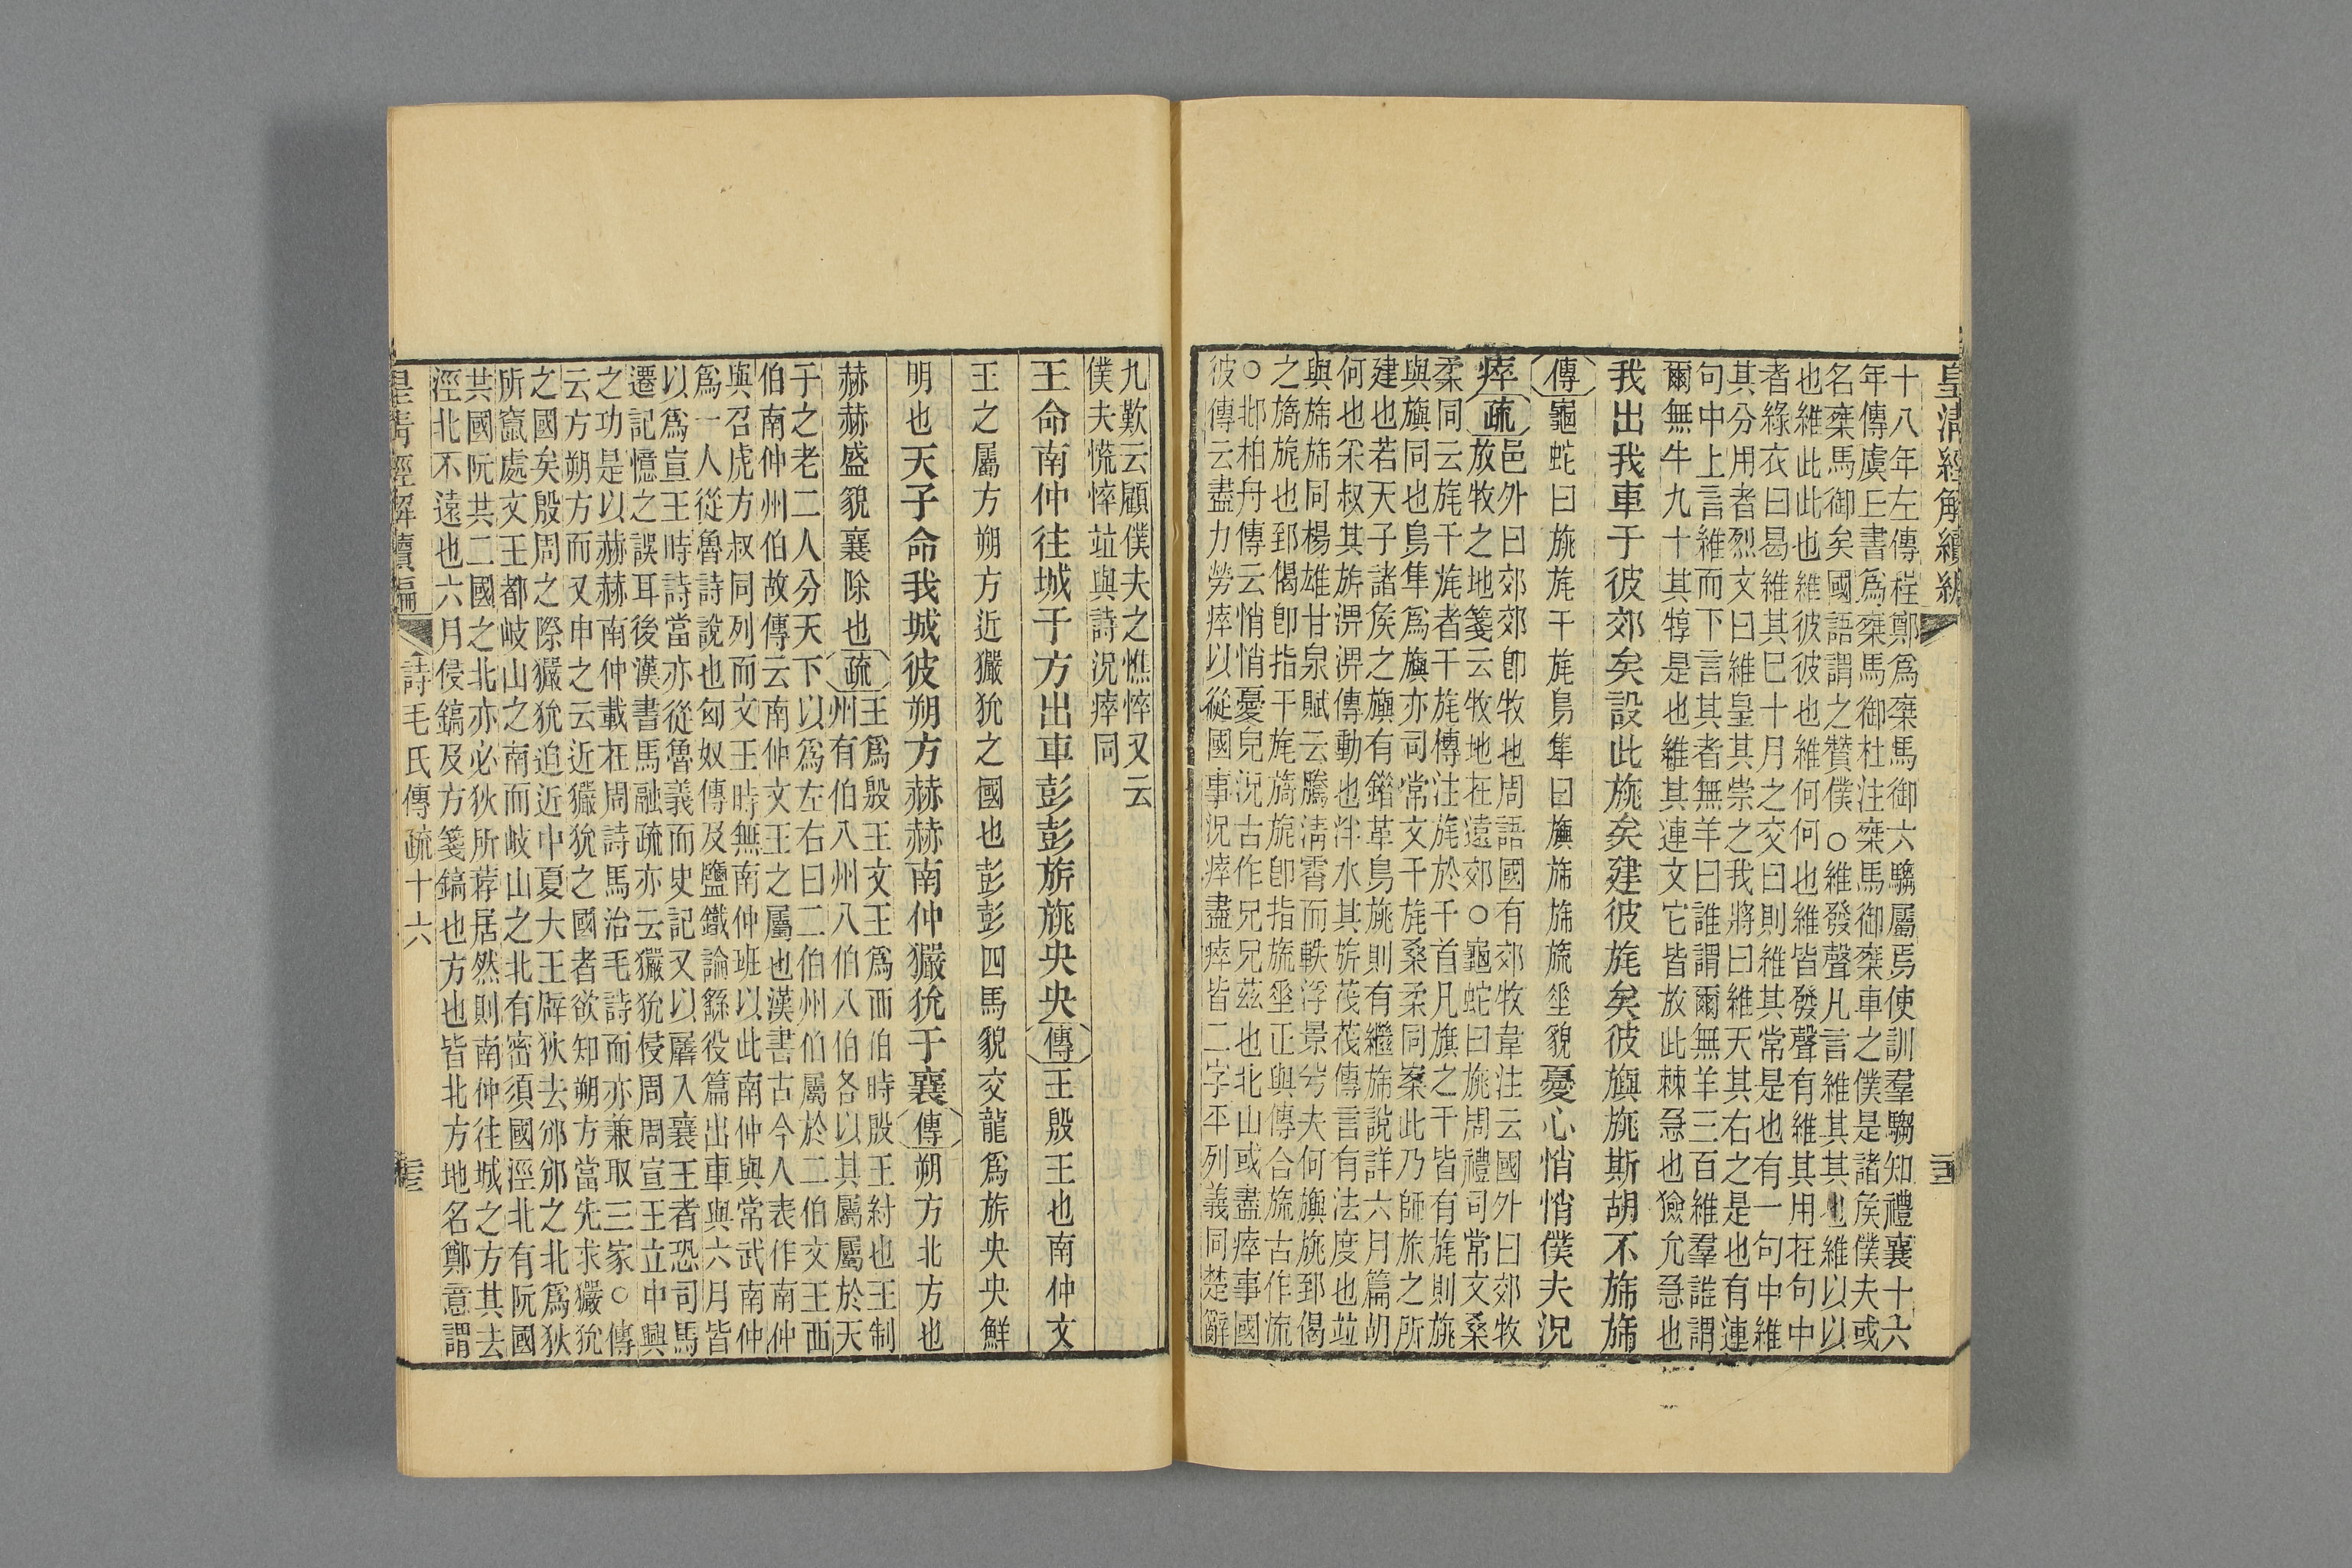 皇清經解續編
十八年左傳程鄭爲椉馬御六騶屬焉使訓羣騶知禮襄十六
年傳虞丘書爲椉馬御杜注椉馬御椉車之僕是諸矦僕夫或
名椉馬御矣國語謂之贊僕○維發聲凡言維其其也維以以
也維此此也維彼彼也維何何也維皆發聲有維其用在句中
者綠衣曰曷維其巳十月之交曰則維其常是也有一句中維
其分用者烈文曰維皇其崇之我將曰維天其右之是也有連
句中上言維而下言其者無羊曰誰謂爾無羊三百維羣誰謂
爾無牛九十其犉是也維其連文它皆放此棘急也獫允急也
我出我車于彼郊矣設此旐矣建彼旄矣彼旟旐斯胡不旆旆
傳龜蛇曰旐旄干旄鳥隼曰旟旆旆旒垂貌憂心悄悄僕夫況
瘁疏邑外曰郊郊卽牧也周語國有郊牧韋注云國外曰郊牧
放牧之地箋云牧地在遠郊○龜蛇曰旐周禮司常文桑
柔同云旄干旄者干旄傳注旄於干首凡旗之干皆有旄則旐
與旟同也鳥隼爲旟亦司常文干旄桑柔同案此乃師旅之所
建也若天子諸矦之旟有鍇革鳥旐則有繼旆說詳六月篇胡
何也采叔其旂淠淠傳動也泮水其旂茷茷傳言有法度也竝
與旆旆同楊雄甘泉賦云騰淸霄而軼浮景兮夫何旟旐郅偈
之旖旎也郅偈卽指干旄旖旎卽指旒垂正與傳合旒古作流
○邶柏舟傳云悄悄憂皃況古作兄兄茲也北山或盡瘁事國
彼傳云盡力勞瘁以從國事況瘁盡瘁皆二字平列義同楚辭
九歎云顧僕夫之憔悴又云
僕夫慌悴竝與詩況瘁同
王命南仲往城于方出車彭彭旂旐央央傳王殷王也南仲文
王之屬方朔方近玁狁之國也彭彭四馬貌交龍爲旂央央鮮
明也天子命我城彼朔方赫赫南仲玁狁于襄傳朔方北方也
赫赫盛貌襄除也疏王爲殷王文王爲西伯時殷王紂也王制
州有伯八州八伯八伯各以其屬屬於天
子之老二人分天下以爲左右曰二伯州伯屬於二伯文王西
伯南仲州伯故傳云南仲文王之屬也漢書古今人表作南仲
與召虎方叔同列而文王時無南仲班以此南仲與常武南仲
爲一人從魯詩說也匈奴傳及鹽鐵論繇役篇出車與六月皆
以爲宣王時詩當亦從魯義而史記又以羼入襄王者恐司馬
遷記憶之誤耳後漢書馬融疏亦云玁狁侵周周宣王立中興
之功是以赫赫南仲載在周詩馬治毛詩而亦兼取三家○傳
云方朔方而又申之云近玁狁之國者欲知朔方當先求玁狁
之國矣殷周之際玁狁迫近中夏大王辟狄去邠邠之北爲狄
所竄處文王都岐山之南而岐山之北有密須國涇北有阮國
共國阮共二國之北亦必狄所荐居然則南仲往城之方其去
涇北不遠也六月侵鎬及方箋鎬也方也皆北方地名鄭意謂
皇清經解續編 詩毛氏傳疏十六